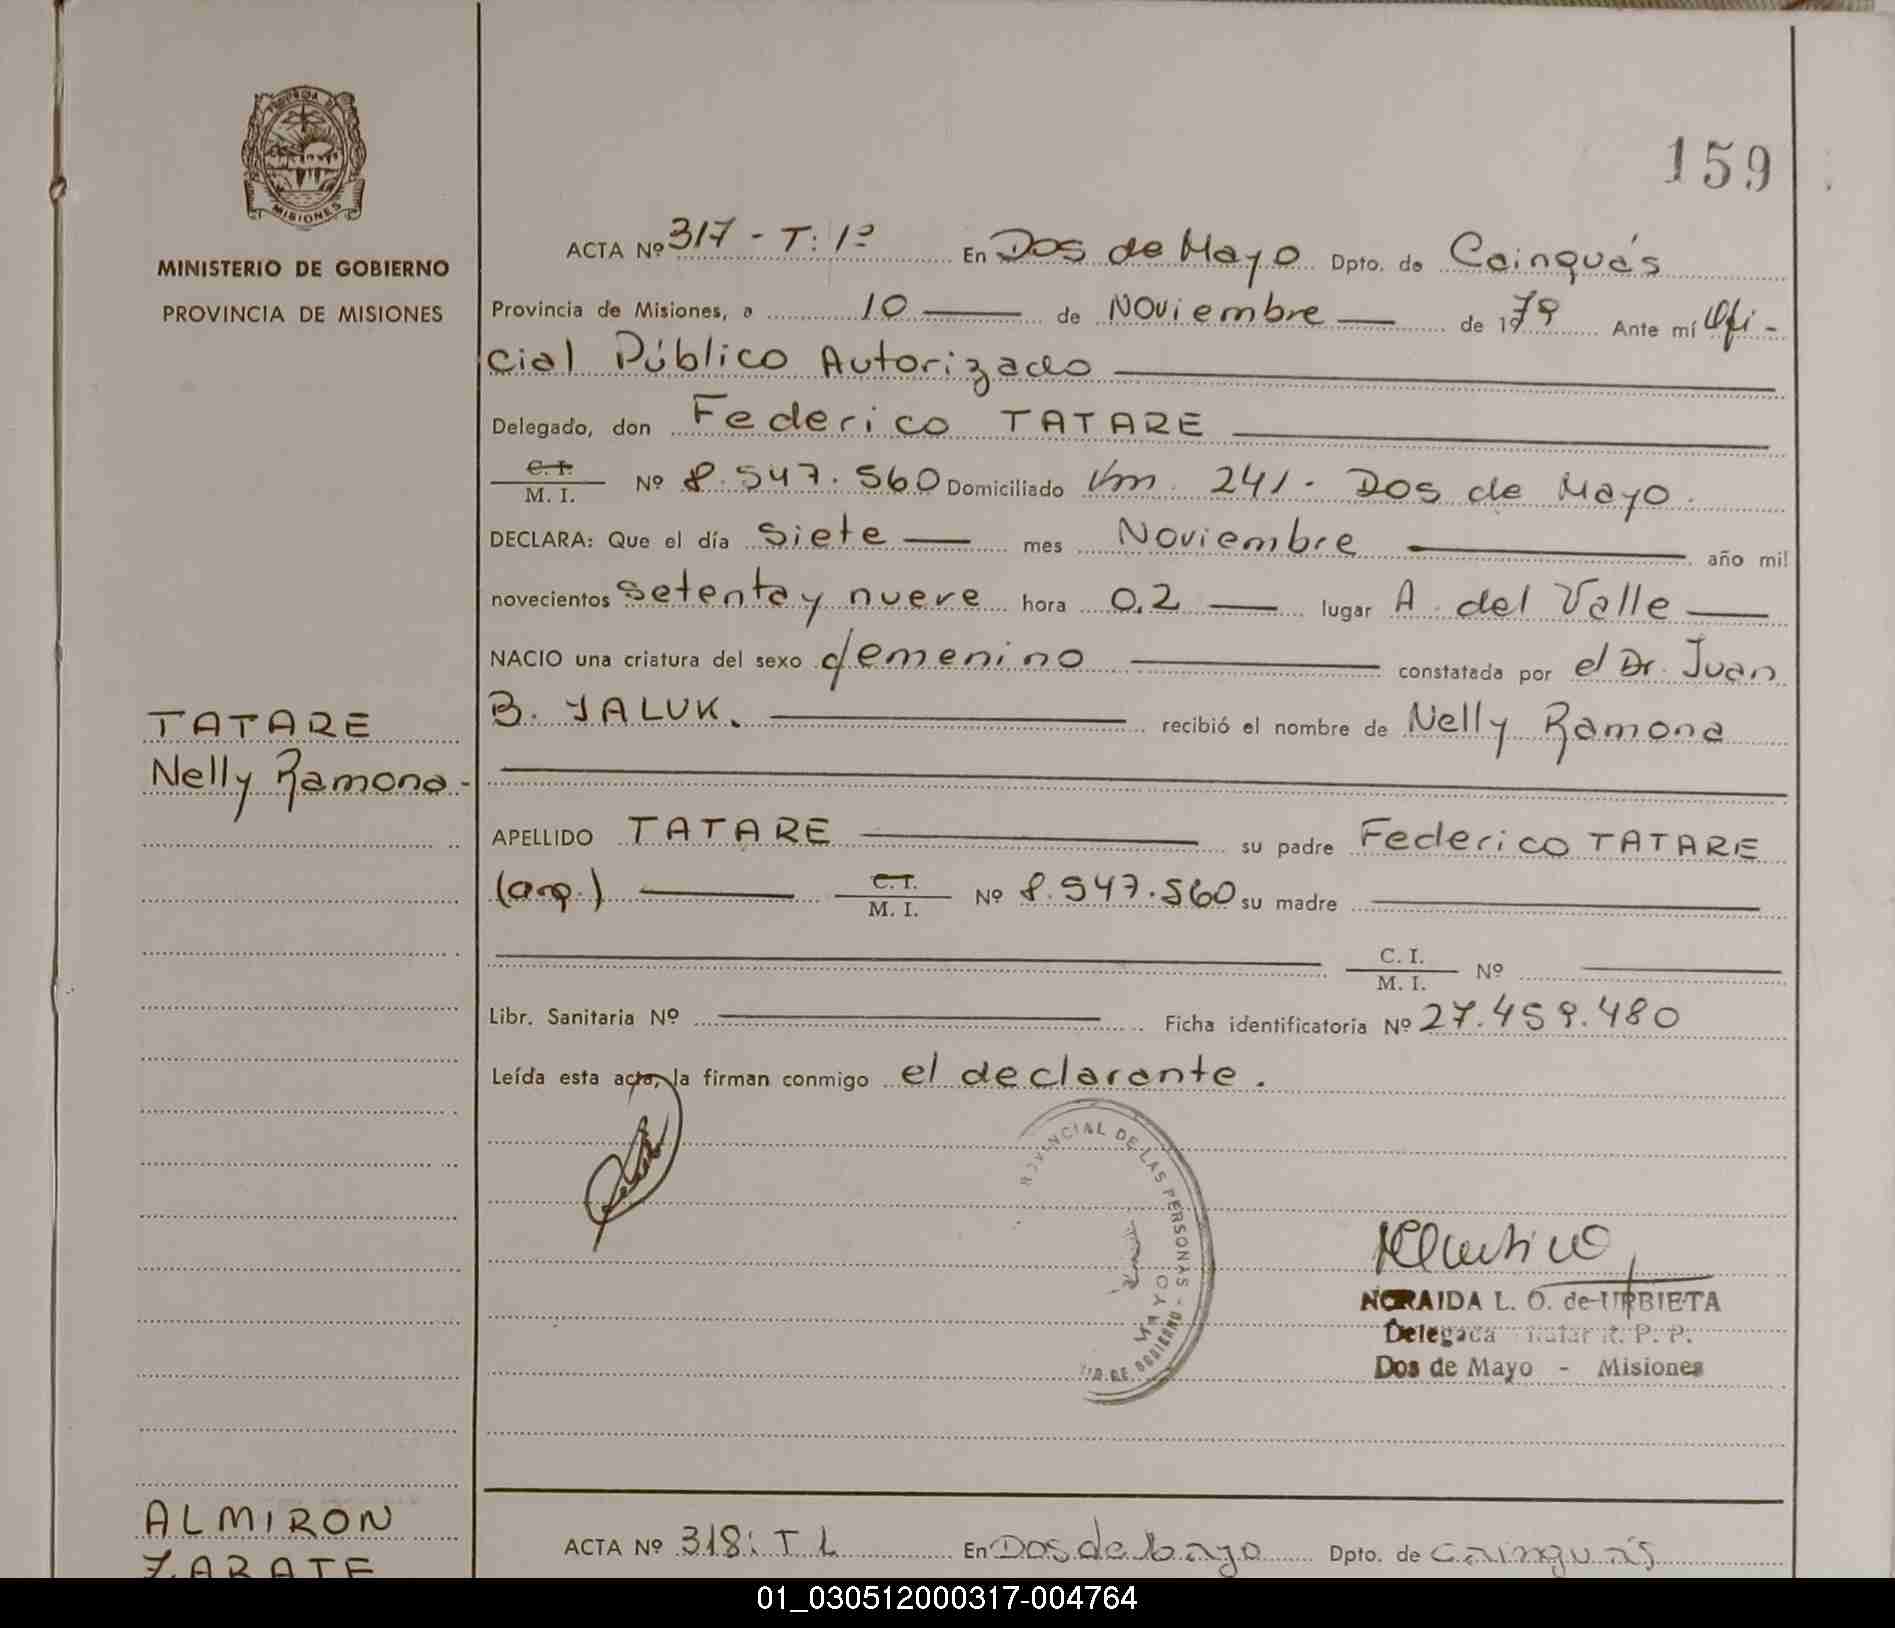 PROVINCIA DE
MISIONES
MINISTERIO DE GOBIERNO
PROVINCIA DE MISIONES
159
ACTA Nº 317 - T: 1º En Dos de Mayo Dpto. de Cainguás
Provincia de Misiones, a 10 de Noviembre de 1979 Ante mí Ofi-
cial Público Autorizado
Delegado, don Federico TATARE
C. I.
M. I. Nº 8.547.560 Domiciliado Km 241. Dos de Mayo.
DECLARA: Que el día siete mes Noviembre año mil
novecientos setenta y nueve hora 0,2 lugar A. del Valle
NACIO una criatura del sexo femenino constatada por el Dr. Juan
B. YALUK. recibió el nombre de Nelly Ramona
TATARE
Nelly Ramona -
APELLIDO TATARE su padre Federico TATARE
(arg.) C. I.
M. I. Nº 8.547.560 su madre
C. I.
M. I. Nº
Libr. Sanitaria Nº Ficha identificatoria Nº 27.459.480
Leída esta acta, la firman conmigo el declarante.
PROVINCIAL DE LAS PERSONAS -
MAYO
DE GOBIERNO
NORAIDA L. O. de URBIETA
Delegada R. P. P.
Dos de Mayo - Misiones
ALMIRON
ZARATE
ACTA Nº 318: T 1 En Dos de Mayo Dpto. de Cainguás
01_030512000317-004764